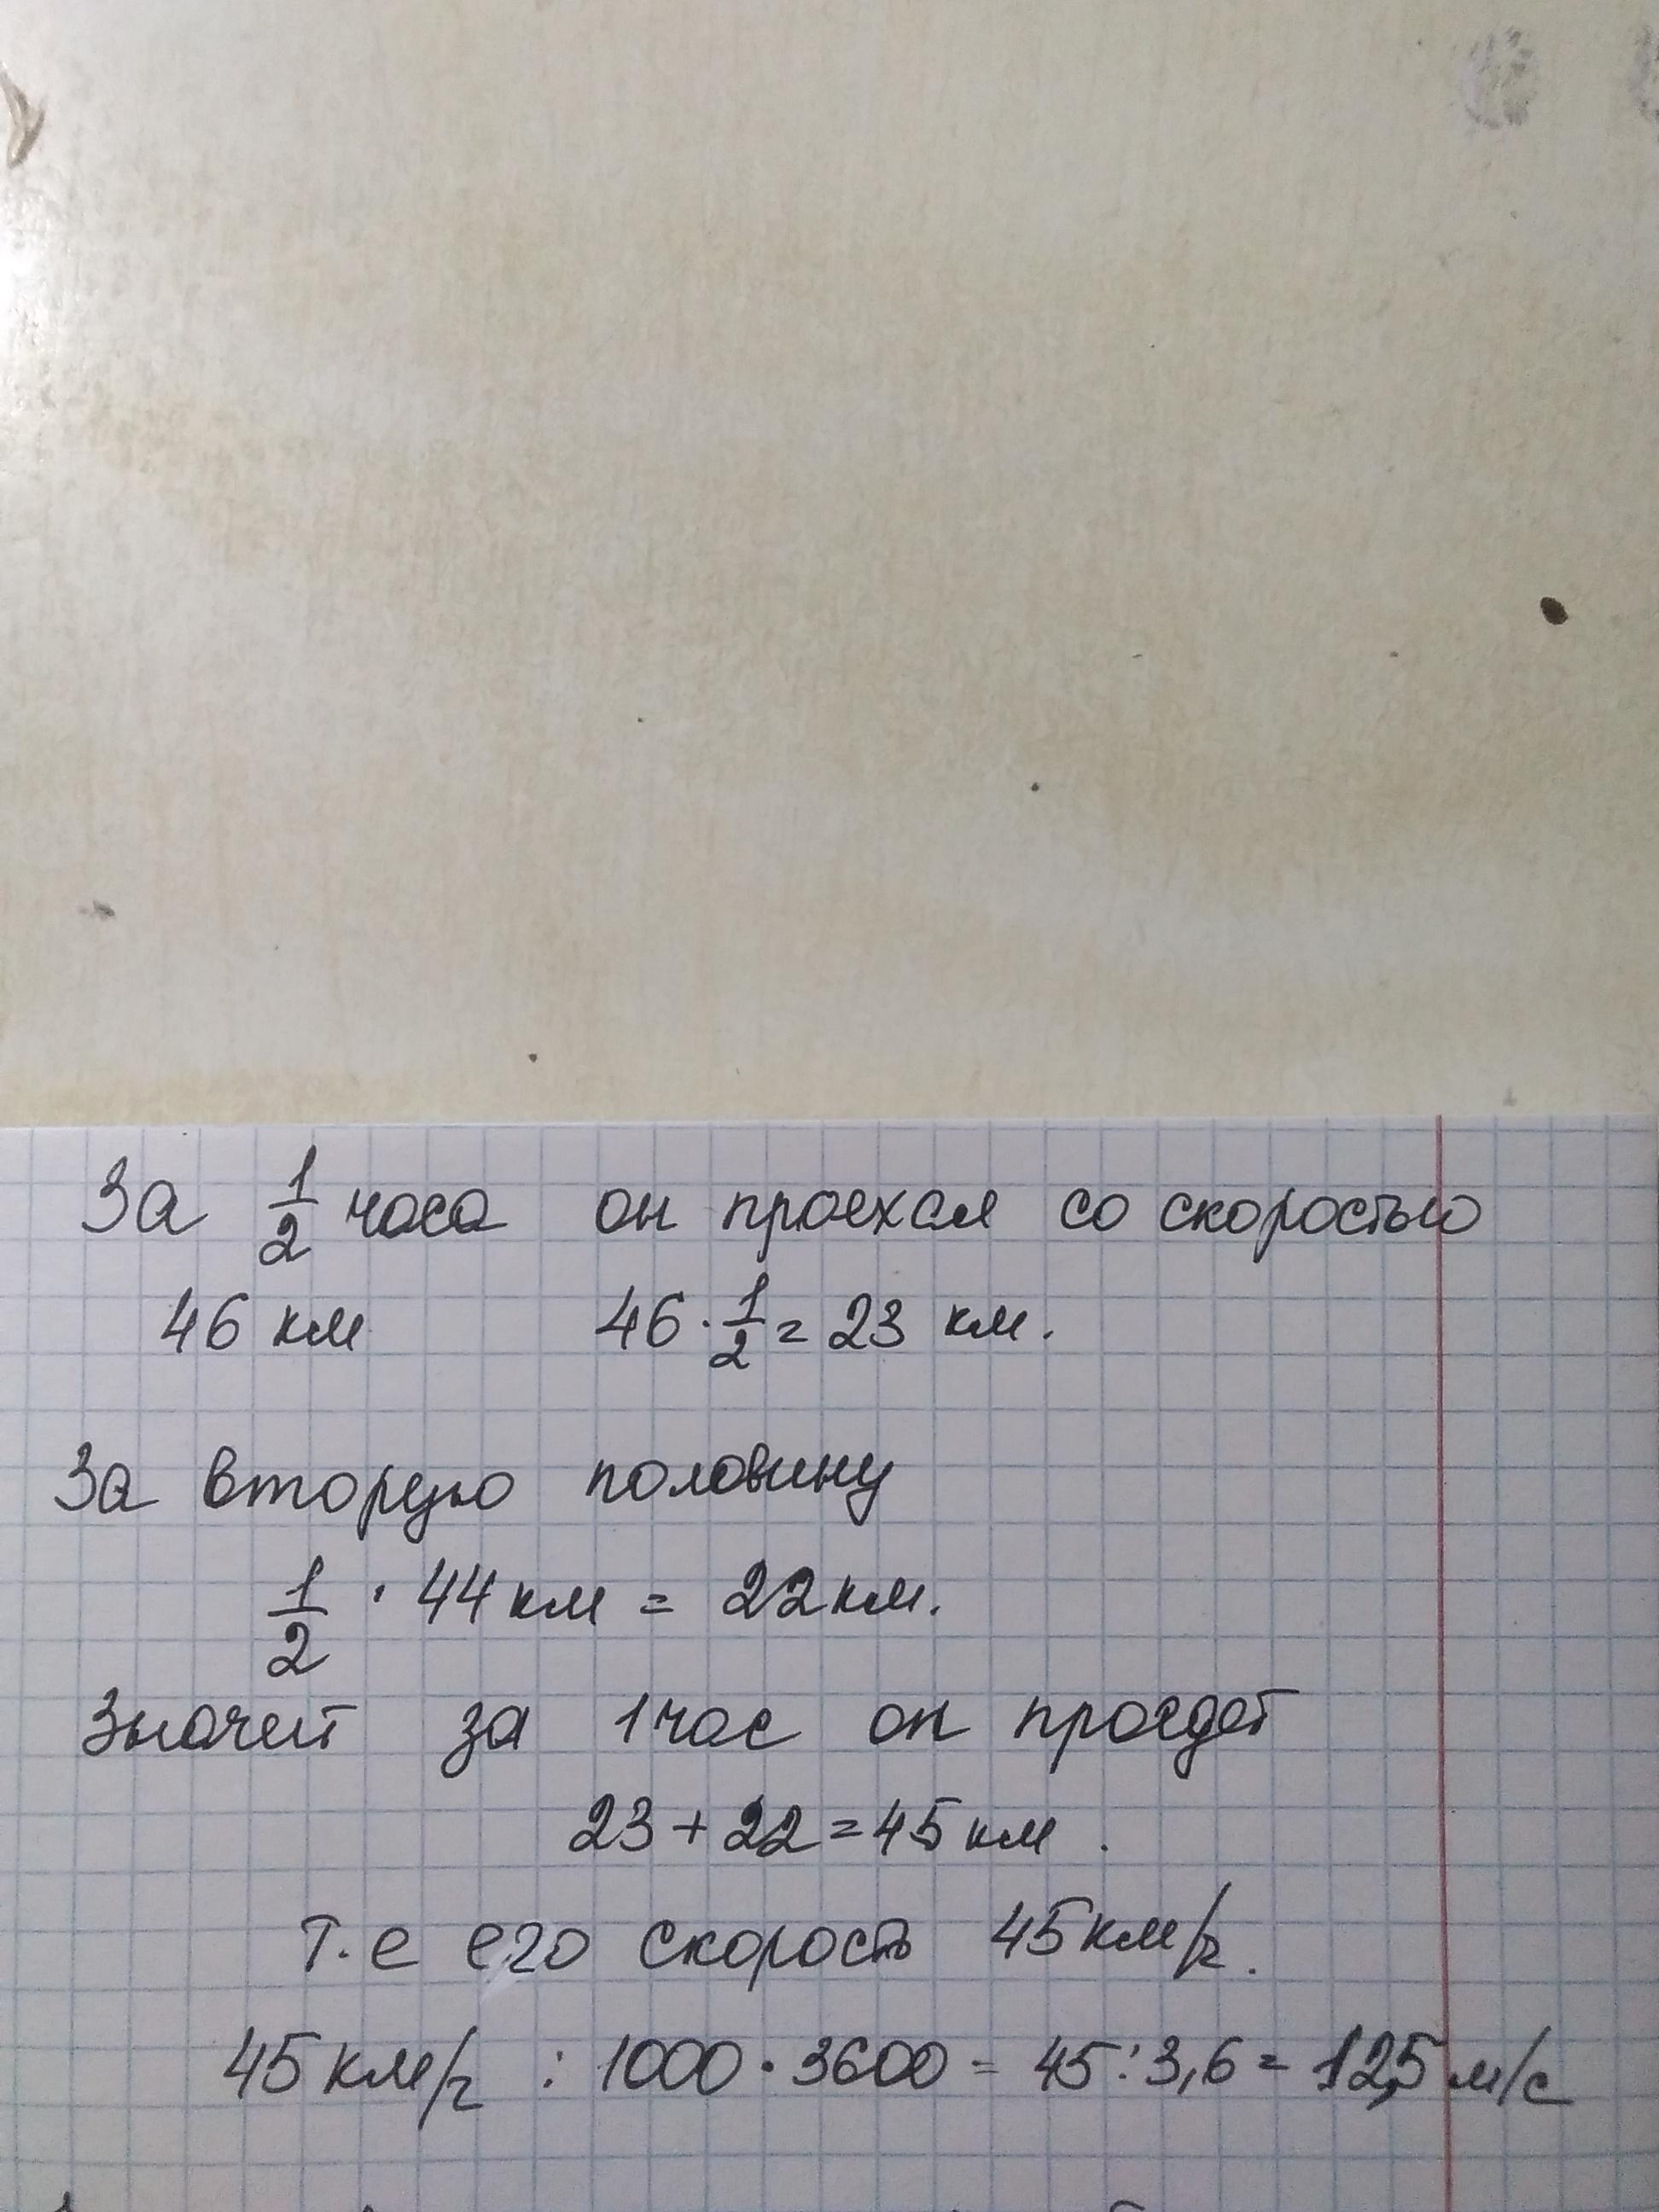 За 1/2 часа он проехал со скоростью
46 км 46 · 1/2 = 23 км.
За вторую половину
1/2 · 44 км = 22 км.
Значит за 1 час он проедет
23 + 22 = 45 км .
Т.е его скорость 45 км/ч.
45 км/ч : 1000 · 3600 = 45 : 3,6 = 12,5 м/с